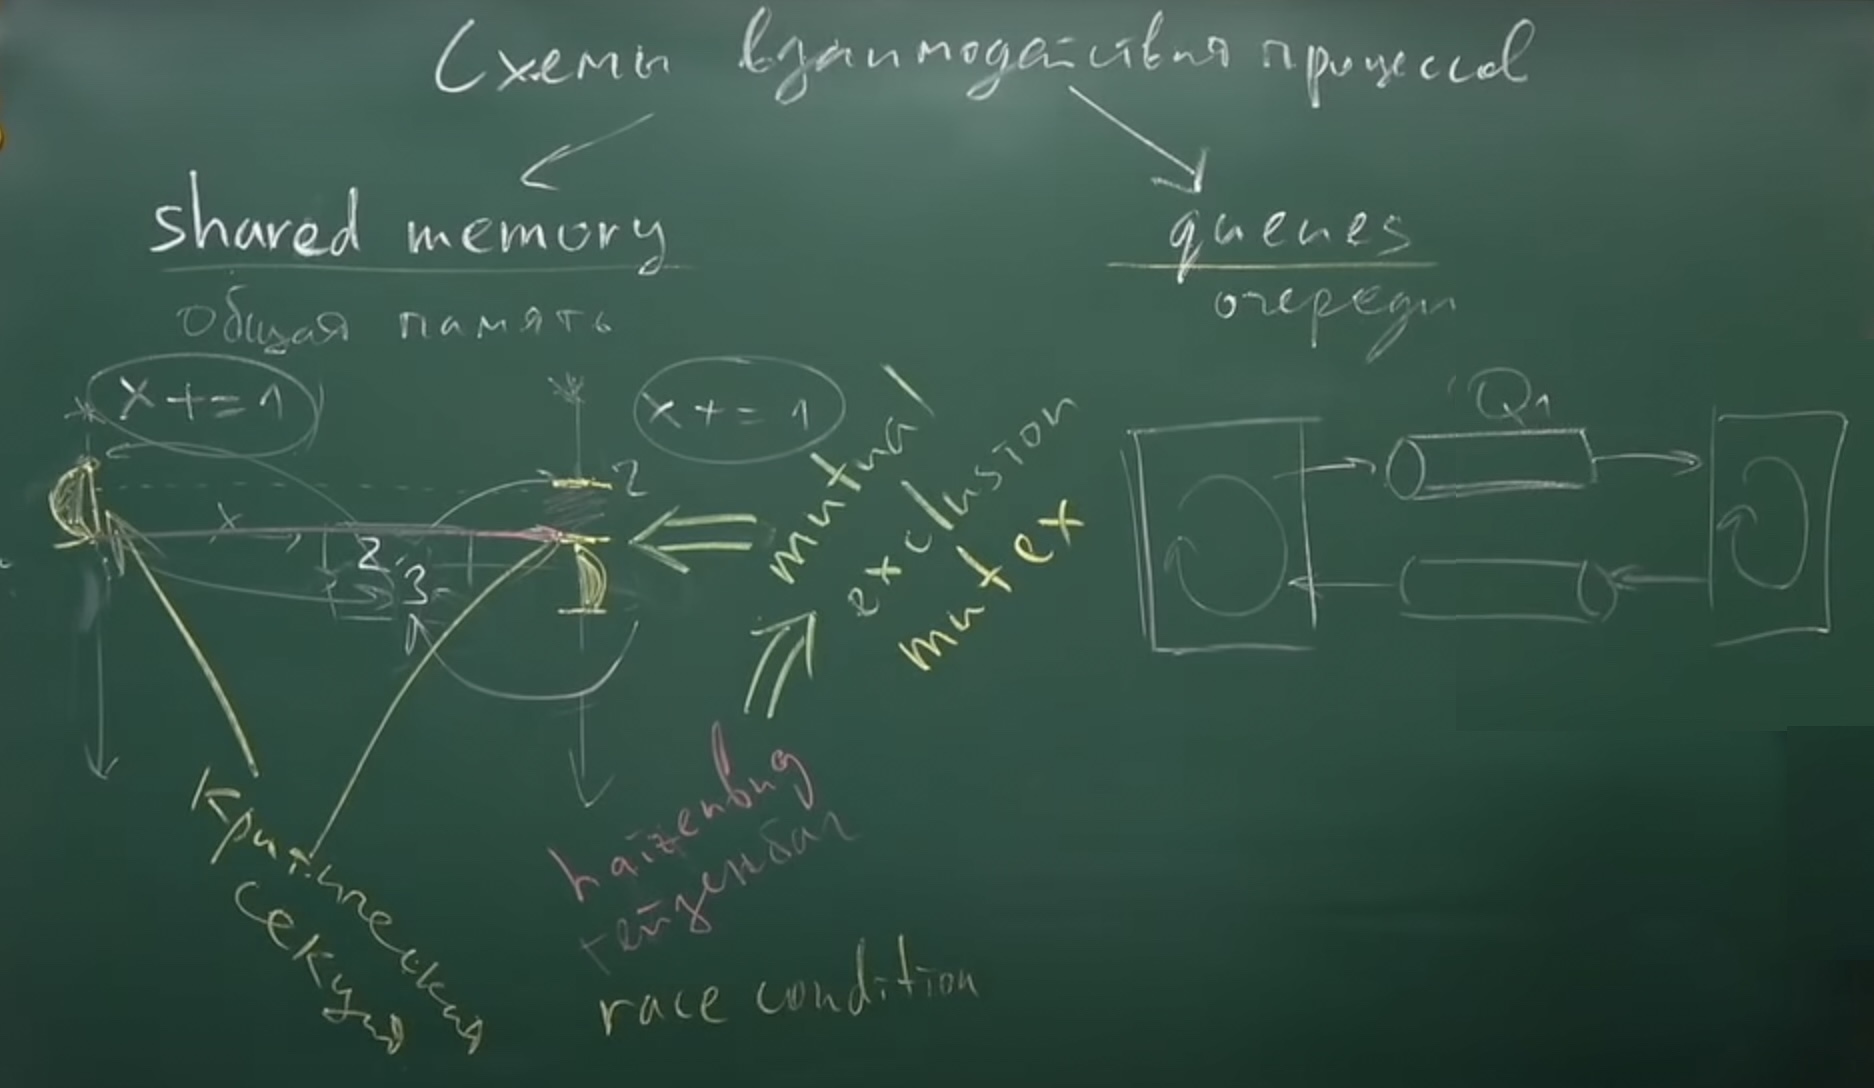 Схемы взаимодействия процессов
shared memory
общая память
queues
очереди
x += 1
x += 1
Q1
2
x
2
3
mutual
exclusion
mutex
haizenbug
гейзенбаг
race condition
Критическая
секция